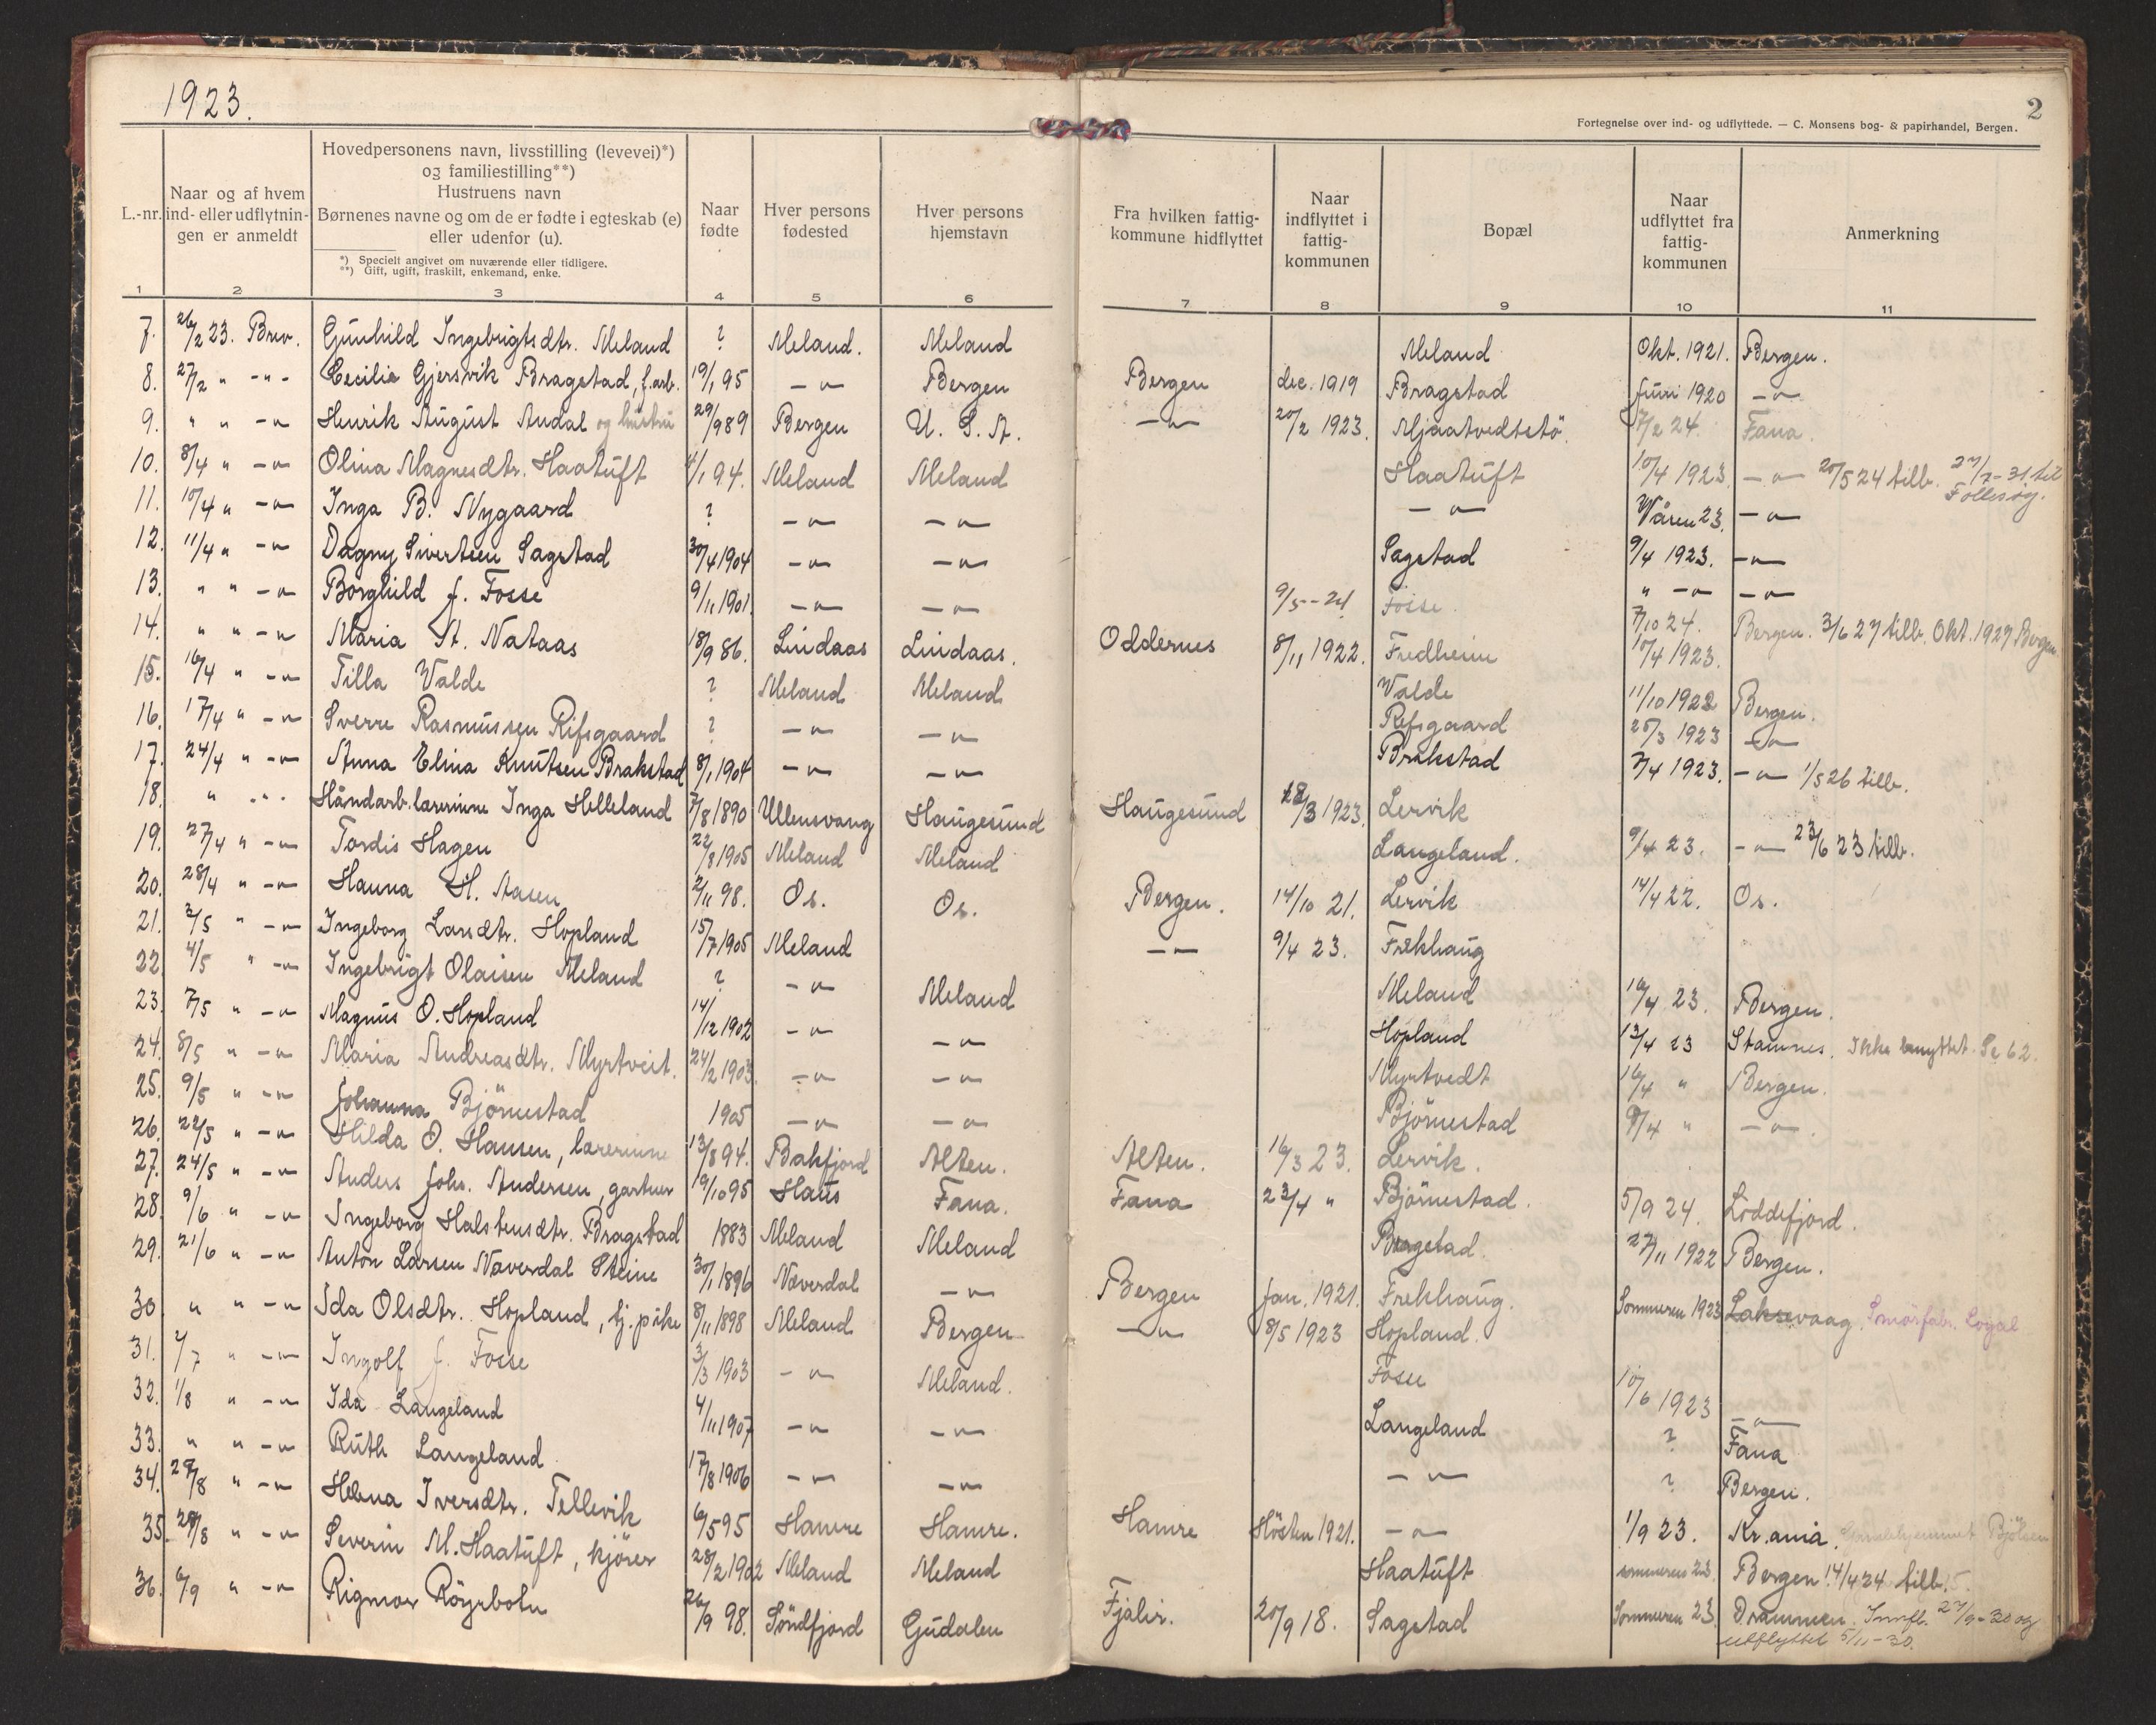 1923.
2
Fortegnelse over ind- og udflyttede. — C. Monsens bog- & papirhandel, Bergen.
L.-nr.
Naar og af hvem ind- eller udflytnin-gen er anmeldt
Hovedpersonens navn, livsstilling (levevei)*)
og familiestilling**)
Hustruens navn
Børnenes navne og om de er fødte i egteskab (e)
eller udenfor (u).
*) Specielt angivet om nuværende eller tidligere.
**) Gift, ugift, fraskilt, enkemand, enke.
Naar fødte
Hver persons fødested
Hver persons hjemstavn
Fra hvilken fattig-kommune hidflyttet
Naar indflyttet i fattig-kommunen
Bopæl
Naar udflyttet fra fattig-kommunen
Anmerkning
1 2 3 4 5 6 7 8 9 10 11
7. 26/2 23. Brev. Gunhild Ingebrigtsdtr. Meland ? Meland. Meland Meland Okt. 1921. Bergen.
8. 27/2 " -"- Cecilie Gjersvik Bragstad, f.arb. 19/1 95 -"- Bergen Bergen dec. 1919 Bragstad Juni 1920 -"-
9. " " -"- Henrik August Andal og hustru 29/9 89 Bergen U. S. A. -"- 20/2 1923. Mjaatvedtstö 7/2 24. Fana.
10. 8/4 " -"- Olina Magnesdtr. Haatuft 4/1 94. Meland Meland Haatuft 10/4 1923. -"- 20/5 24 tilb. 27/7-31 til Follesøy.
11. 10/4 " -"- Inga B. Nygaard ? -"- -"- -"- Våren 23. -"-
12. 11/4 " -"- Dagny Sivertsen Sagstad 30/4 1904 -"- -"- Sagstad 9/4 1923. -"-
13. " " -"- Borghild J. Fosse 9/11 1901. -"- -"- 9/5-24 Fosse. " -"- -"-
7/10 24. Bergen. 3/6 27 tilb. Okt. 1927 Bergen
14. " " -"- Maria St. Nataas 18/9 86. Lindaas Lindaas. Oddernes 8/11 1922. Fredheim 10/4 1923.
15. 16/4 " -"- Tilla Valde ? Meland Meland Valde 11/10 1922 Bergen.
16. 17/4 " -"- Sverre Rasmussen Rifsgaard ? -"- -"- Refsgaard 25/3 1923 -"-
17. 24/4 " -"- Anna Elina Knutsen Brakstad 8/1 1904 -"- -"- Brakstad 7/4 1923. -"- 1/5 26 tilb.
18. " -"- Håndarb.lærerinne Inga Helleland 7/8 1890 Ullensvang Haugesund Haugesund 28/3 1923. Lervik
19. 27/4 " -"- Tordis Hagen 22/8 1905 Meland Meland Langeland. 9/4 23. -"- 23/6 23 tilb.
20. 28/4 " -"- Hanna H. Aasen 2/11 98. Os. Os. Bergen. 14/10 21. Lervik 14/4 22. Os.
21. 3/5 " -"- Ingeborg Larsdtr. Hopland 15/7 1905 Meland -"- 9/4 23. Frekhaug
22. 4/5 " -"- Ingebrigt Olaisen Meland ? -"- Meland Meland 16/4 23. Bergen.
23. 7/5 " -"- Magnus O. Hopland 14/12 1902 -"- -"- Hopland 13/4 23 Stamnes. Ikke benyttet. Se 62.
24. 8/5 " -"- Maria Andreasdtr. Myrtveit. 24/2 1903. -"- -"- Myrtvedt 16/4 " Bergen.
25. 9/5 " -"- Johanna Björnestad 1905 -"- -"- Björnestad 9/4 " -"-.
26. 22/5 " -"- Hilda O. Hansen, lærerinne 13/8 94. Bakfjord Alten. Alten. 16/3 23. Lervik.
27. 24/5 " -"- Anders Johs. Andersen, gartner 19/10 95 Haus Fana. Fana 23/4 " Björnestad. 5/9 24. Loddefjord.
28. 9/6 " -"- Ingeborg Halstensdtr. Bragstad 1883 Meland Meland Bragstad. 27/11 1922 Bergen.
29. 21/6 " -"- Anton Larsen Naverdal Steine 30/1 1896 Naverdal -"- Bergen Jan. 1921. Frekhaug. Sommeren 1923 Laksevaag. Smörfabr. Loyal
30. " " -"- Ida Olsdtr. Hopland, tj.pike 8/11 1898 Meland Bergen -"- 8/5 1923 Hopland.
31. 2/7 " -"- Ingolf J. Fosse 3/3 1903 -"- Meland. Fosse 10/6 1923 -"-
32. 1/8 " -"- Ida Langeland 4/11 1907 -"- -"- Langeland ? Fana
33. " " -"- Ruth Langeland 17/8 1906 -"- -"- -"- ? Bergen.
34. 28/8 " -"- Helena Iversdtr. Tellevik 6/5 95 Hamre Hamre. Hamre Hösten 1921. -"- 1/9 23. Kr.ania. Bjölsen
35. 28/8 " -"- Severin M. Haatuft, kjörer 28/2 1902 Meland Meland Haatuft sommeren 23. Bergen 14/4 24 tilb.
36. 6/9 " -"- Rigmor Röyrbotn 26/9 98. Söndfjord Gudalen Fjalir. 20/9 18. Sagstad Sommeren 23. Drammen. Innfl. 27/9-30 og
utflyttet 5/11-30.